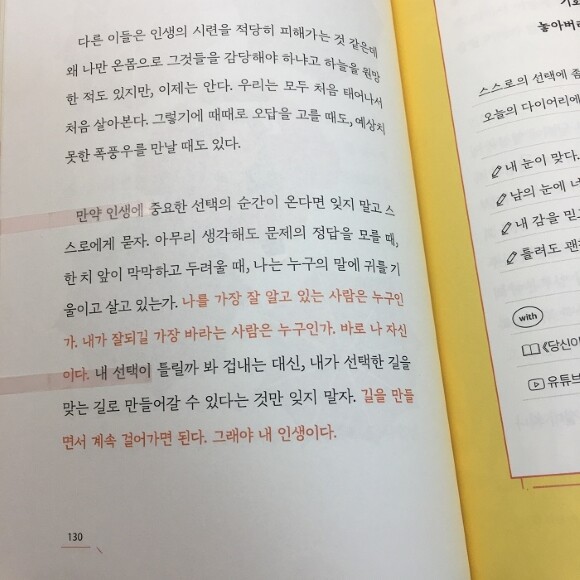 다른 이들은 인생의 시련을 적당히 피해가는 것 같은데
왜 나만 온몸으로 그것들을 감당해야 하냐고 하늘을 원망
한 적도 있지만, 이제는 안다. 우리는 모두 처음 태어나서
처음 살아본다. 그렇기에 때때로 오답을 고를 때도, 예상치
못한 폭풍우를 만날 때도 있다.
만약 인생에 중요한 선택의 순간이 온다면 잊지 말고 스
스로에게 묻자. 아무리 생각해도 문제의 정답을 모를 때,
한 치 앞이 막막하고 두려울 때, 나는 누구의 말에 귀를 기
울이고 살고 있는가. 나를 가장 잘 알고 있는 사람은 누구인
가. 내가 잘되길 가장 바라는 사람은 누구인가. 바로 나 자신
이다. 내 선택이 틀릴까 봐 겁내는 대신, 내가 선택한 길을
맞는 길로 만들어갈 수 있다는 것만 잊지 말자. 길을 만들
면서 계속 걸어가면 된다. 그래야 내 인생이다.
130
놓아버
스스로의 선택에 좀
오늘의 다이어리에
내 눈이 맞다.
남의 눈에 너
내 감을 믿
틀려도 괜
with
《당신이
유튜브